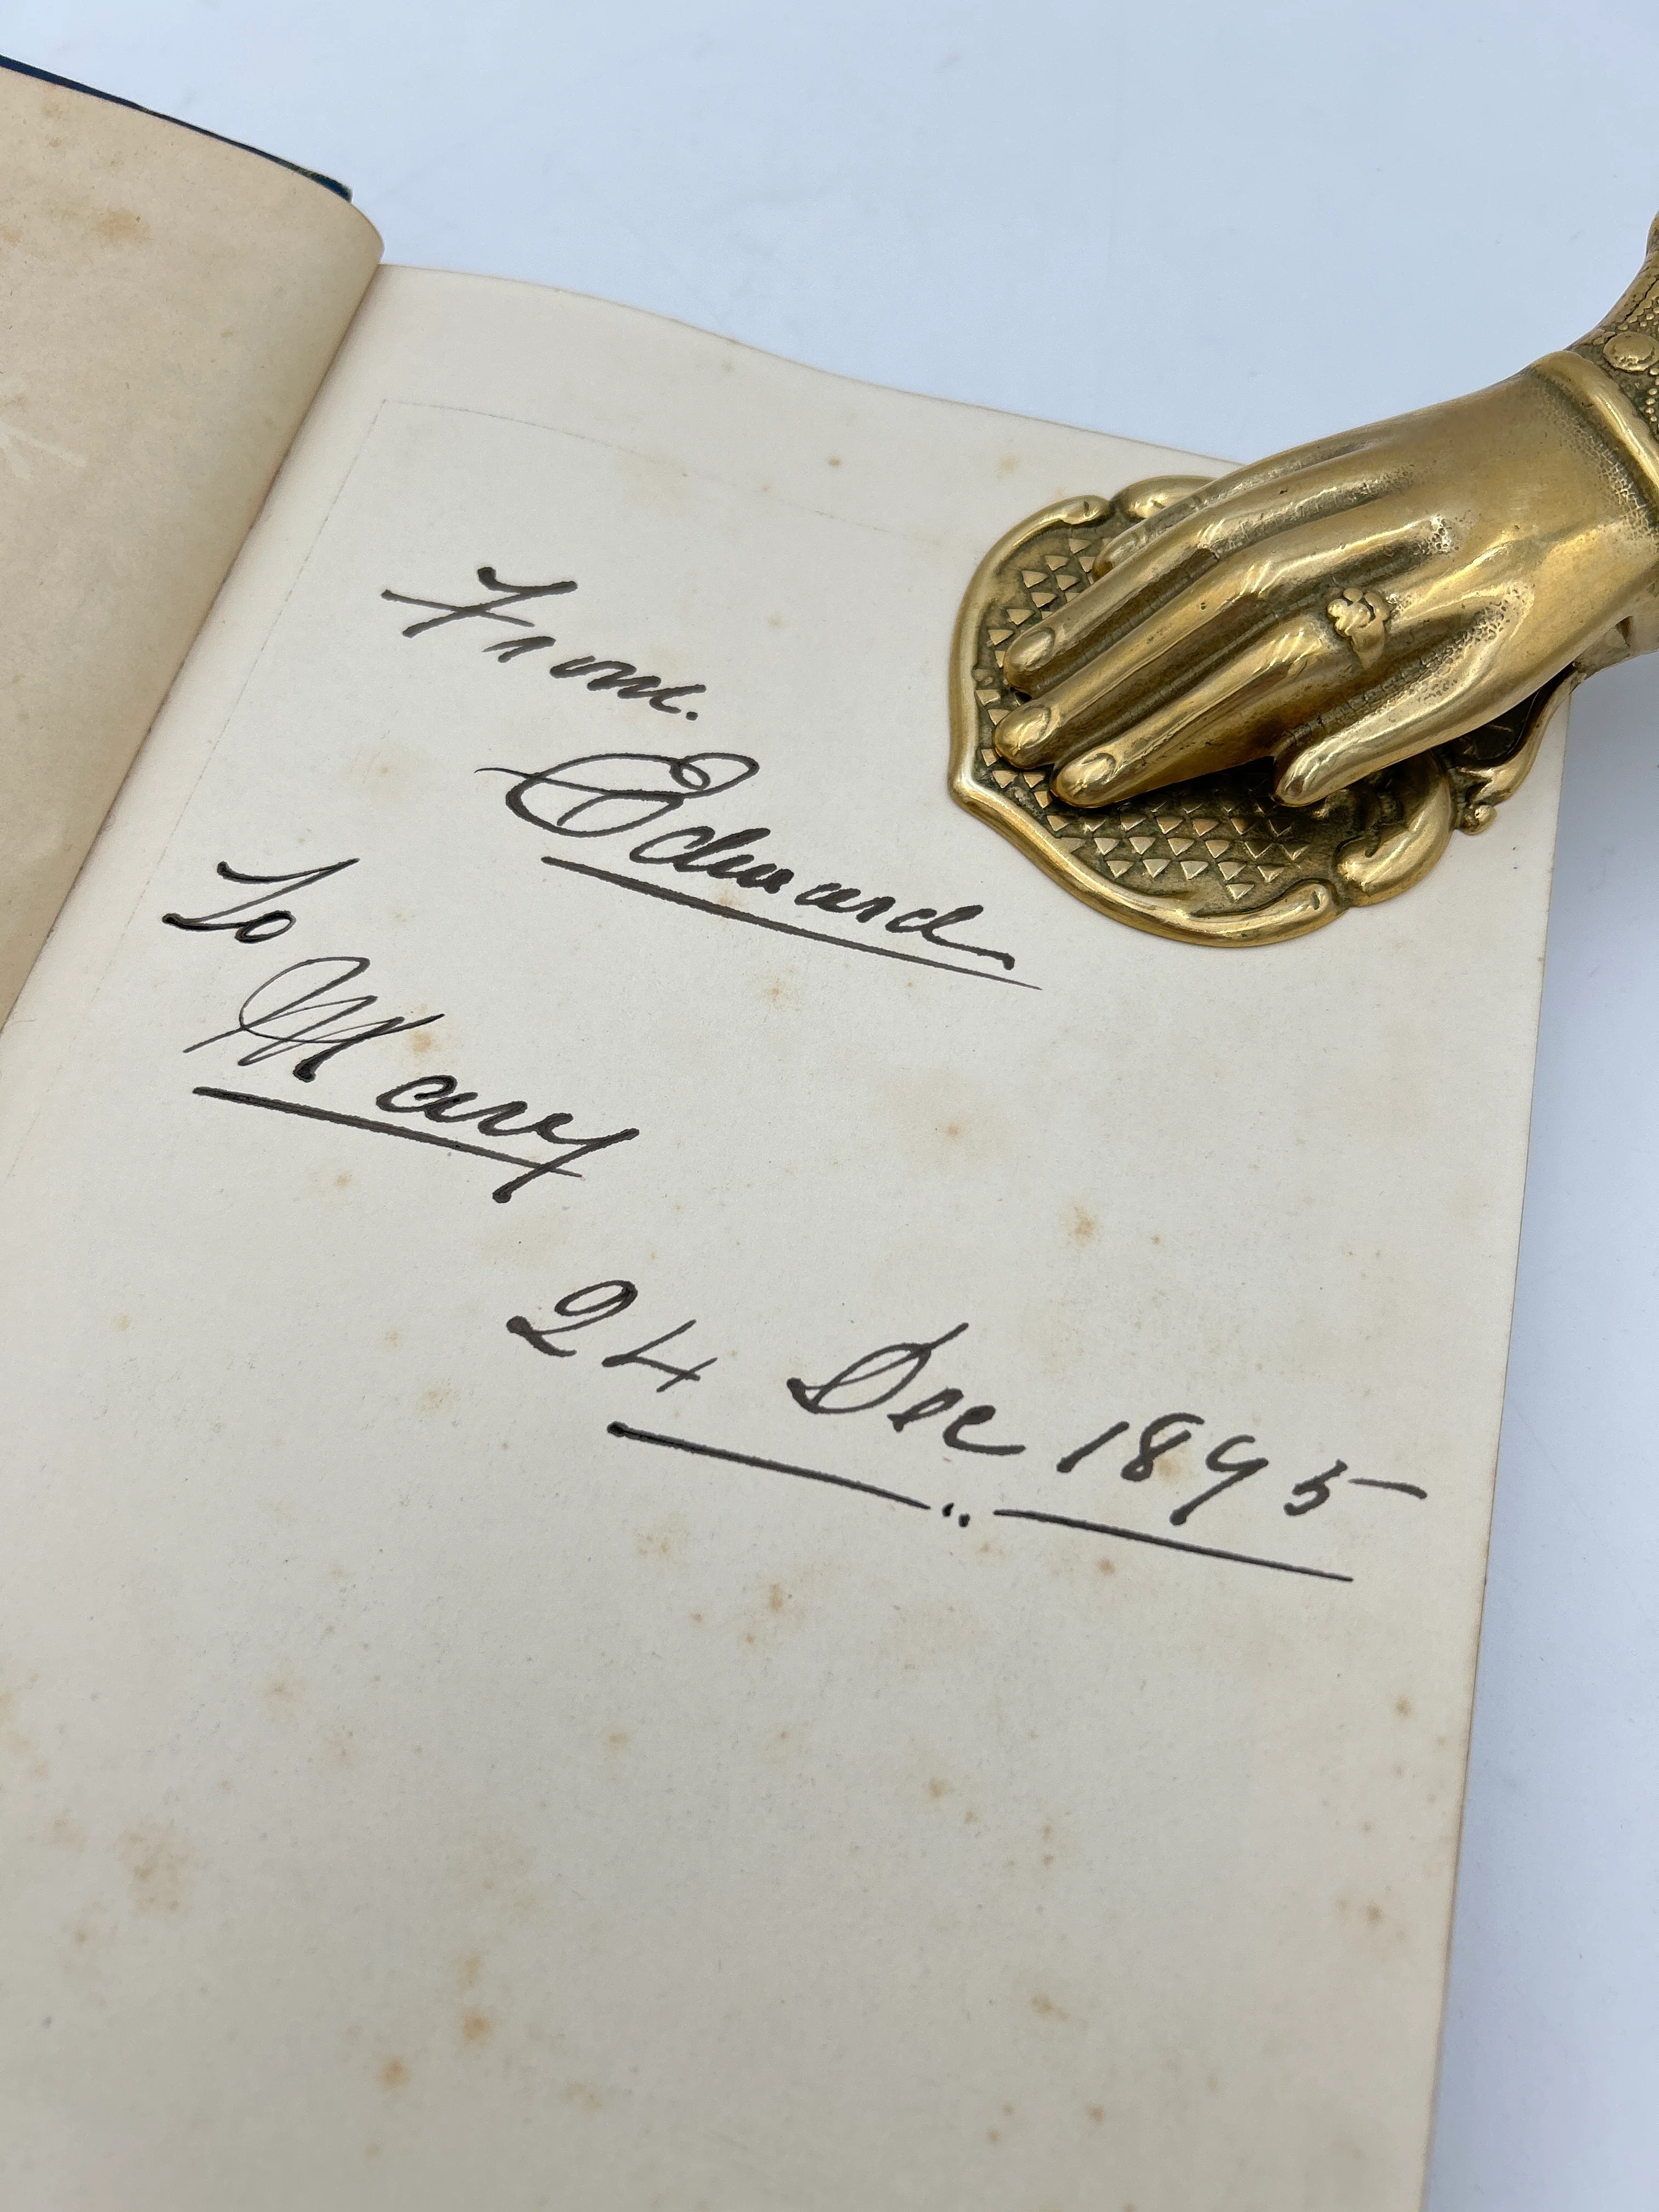 From.
Edward
To
Mary
24 Dec 1895